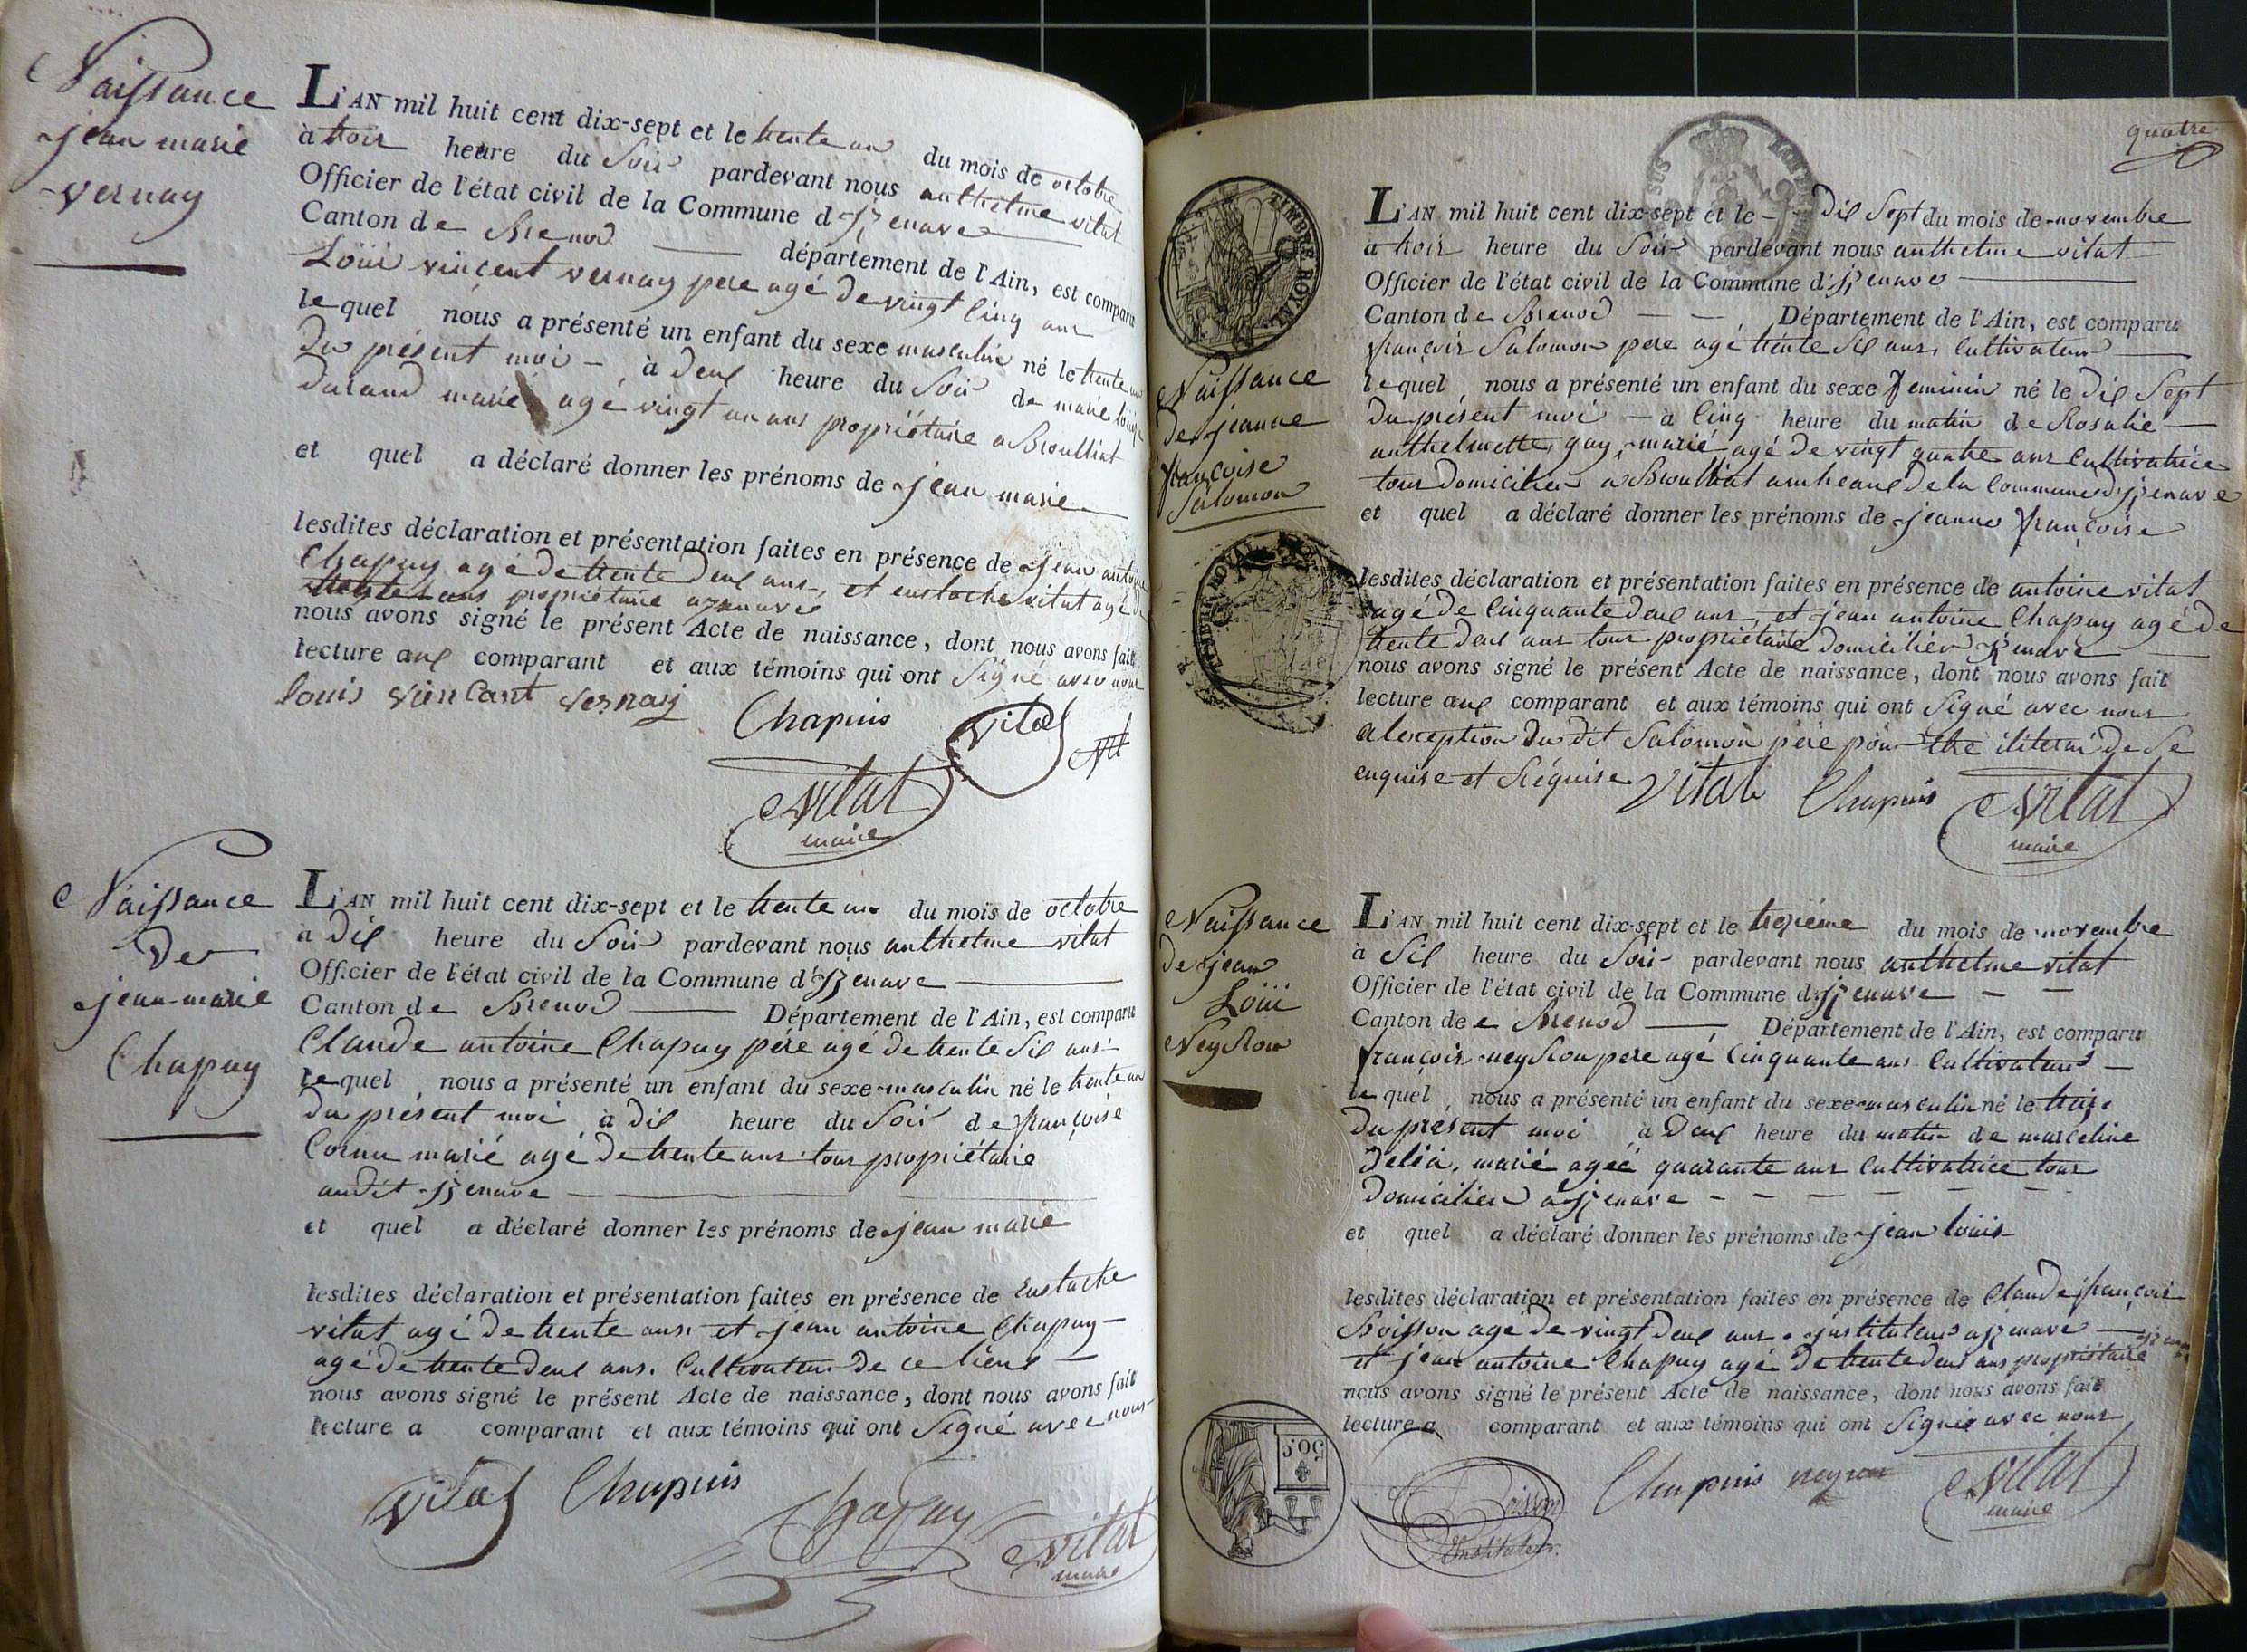 Naissance
jean marie
vernay
L'AN mil huit cent dix-sept et le trente un du mois de octobre
à trois heure du Soir pardevant nous anthelme vitat
Officier de l'état civil de la Commune d'izenave
Canton de Brenod département de l'Ain, est comparu
Loüis vincent vernay pere agé de vingt cinq ans
lequel nous a présenté un enfant du sexe masculin né le trente un
du présent moi à deux heure du Soir de marie loüise
durand marié agé vingt un ans propriétaire a Broulliat
et quel a déclaré donner les prénoms de jean marie
lesdites déclaration et présentation faites en présence de jean antoine
Chapuy agé de trente deux ans, et eustache vitat agé de
trente ans propriétaire a izenave
nous avons signé le présent Acte de naissance, dont nous avons fait
lecture aux comparant et aux témoins qui ont Signé avec nous
louis vien cant vernay
Chapuis
vital
vitat
maire
Naissance
De
jean-marie
Chapuy
L'AN mil huit cent dix-sept et le trente un du mois de octobre
à dix heure du Soir pardevant nous anthelme vitat
Officier de l'état civil de la Commune d'izenave
Canton de Brenod Département de l'Ain, est comparu
Claude antoine Chapuy pére agé de trente Six ans
lequel nous a présenté un enfant du sexe masculin né le trente un
du présent moi à dix heure du Soir de françoise
Cornu marié agé de trente ans tous propriétaire
audit izenave
et quel a déclaré donner les prénoms de jean marie
lesdites déclaration et présentation faites en présence de Eustache
vitat agé de trente ans et jean antoine Chapuy
agé de trente deux ans. Cultivateur de ce lieux
nous avons signé le présent Acte de naissance, dont nous avons fait
lecture a comparant et aux témoins qui ont Signé avec nous
vital Chapuis
Chapuy
vitat
maire
quatre
TIMBRE ROYAL
Naissance
de jeanne
françoise
Salomon
L'AN mil huit cent dix-sept et le dix Sept du mois de novembre
à trois heure du Soir pardevant nous anthelme vitat
Officier de l'état civil de la Commune d'izenave
Canton de Brenod Département de l'Ain, est comparu
françois Salomon pere agé trente Six ans, Cultivateur
lequel nous a présenté un enfant du sexe feminin né le dix Sept
du présent moi à Cinq heure du matin de Rosalie
anthelmette gay, marié agé de vingt quatre ans Cultivatrice
tous domicilier a Broulliat amheaux de la Commune d'izenave
et quel a déclaré donner les prénoms de jeanne françoise
lesdites déclaration et présentation faites en présence de antoine vitat
agé de Cinquante deux ans, et jean antoine Chapuy agé de
trente deux ans tous propriétaire domicilier izenave
nous avons signé le présent Acte de naissance, dont nous avons fait
lecture aux comparant et aux témoins qui ont Signé avec nous
a lexception du dit Salomon père pour etre iliterai de Se
enquise et Réquise
Vitat Chapuis vitat
maire
Naissance
de jean
Loüi
Neyron
L'AN mil huit cent dix-sept et le treziéme du mois de novembre
à Six heure du Soir pardevant nous anthelme vitat
Officier de l'état civil de la Commune d'izenave
Canton de Brenod Département de l'Ain, est comparu
françois neyron pere agé Cinquante ans Cultivateur
lequel nous a présenté un enfant du sexe masculin né le treize
du présent moi à deux heure du matin de marceline
marié agée quarante ans Cultivatrice tous
domicilier a izenave
et quel a déclaré donner les prénoms de jean loüis
lesdites déclaration et présentation faites en présence de Claude françois
Boisson agé de vingt deux ans instituteur a izenave
et jean antoine Chapuy agé de trente deux ans propriétaire
nous avons signé le présent Acte de naissance, dont nous avons fait
lecture a comparant et aux témoins qui ont Signés avec nous
Boisson
instituteur
Chapuis neyron vitat
maire
50 C